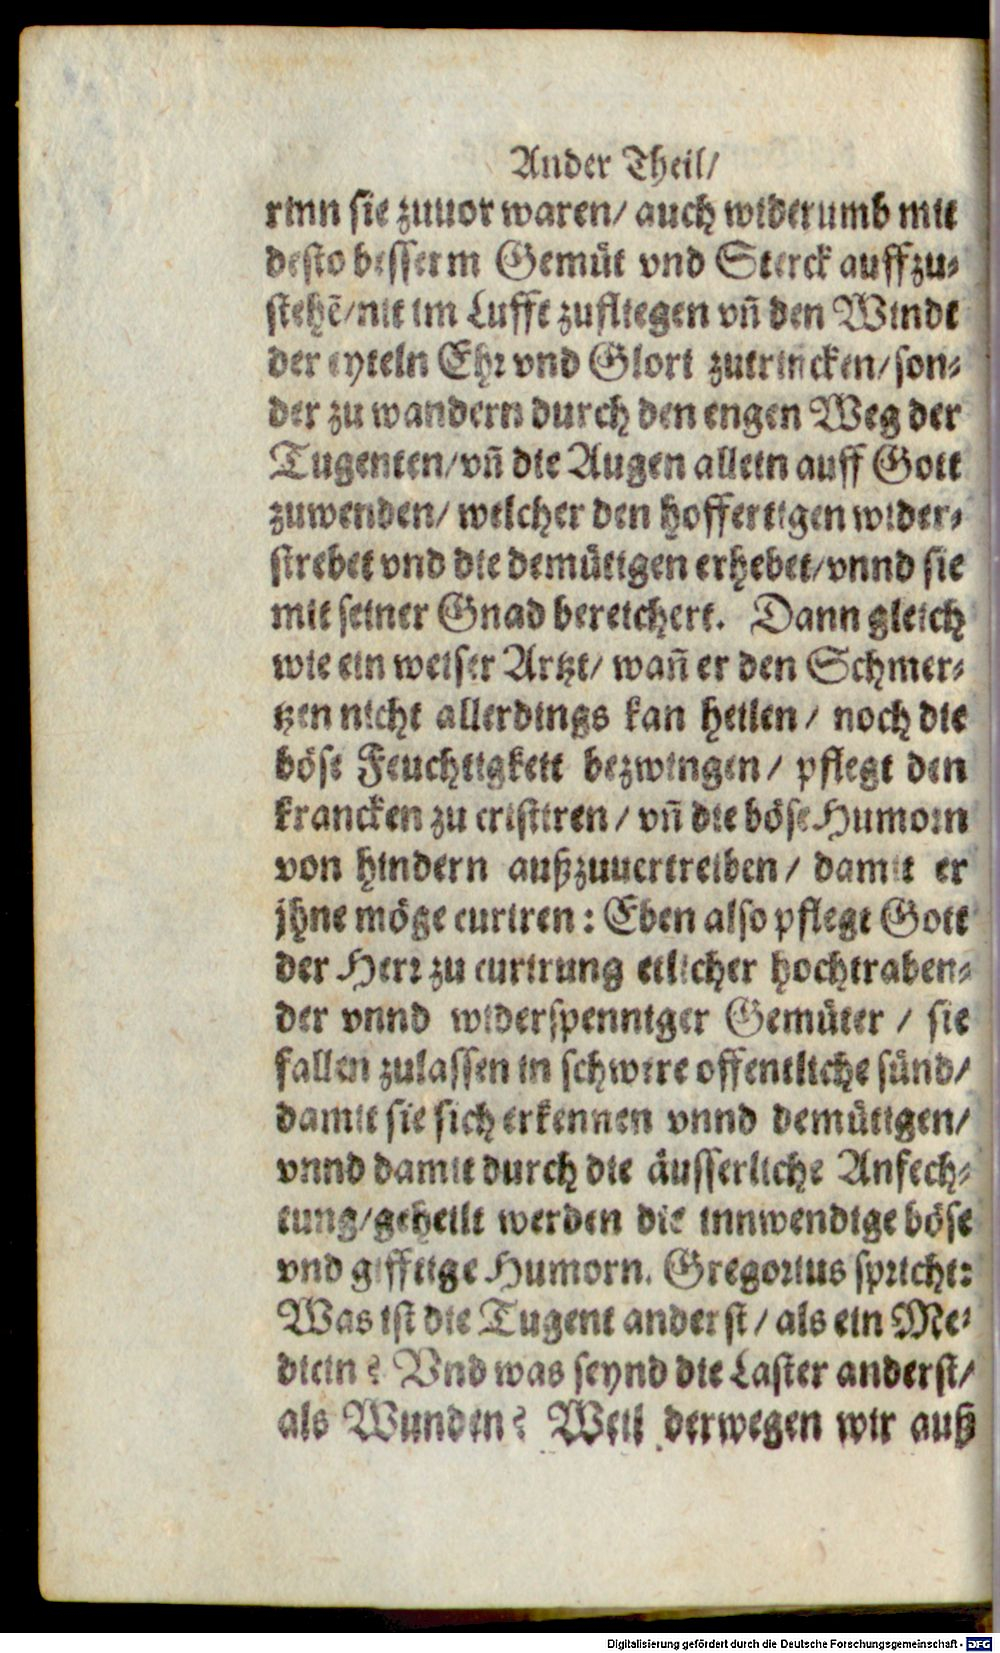 Ander Theil/
rinn sie zuuor waren/ auch widerumb mit
desto besserm Gemüt vnd Sterck auffzu-
stehē/nit im Lufft zufliegen vñ den Windt
der eyteln Ehr vnd Glori zutrincken/son-
der zu wandern durch den engen Weg der
Tugenten/vñ die Augen allein auff Gott
zuwenden/ welcher den hoffertigen wider-
strebet vnd die demütigen erhebet/vnnd sie
mit seiner Gnad bereichert. Dann gleich
wie ein weiser Artzt/ wañ er den Schmer-
tzen nicht allerdings kan heilen/ noch die
böse Feuchtigkeit bezwingen/ pflegt den
krancken zu cristiren/ vñ die böse Humorn
von hindern außzuuertreiben/ damit er
jhne möge curiren: Eben also pflegt Gott
der Herr zu curirung etlicher hochtraben-
der vnnd widerspenniger Gemüter / sie
fallen zulassen in schwere offentliche sünd/
damit sie sich erkennen vnnd demütigen/
vnnd damit durch die äusserliche Anfech-
tung/geheilt werden die innwendige böse
vnd gifftige Humorn. Gregorius spricht:
Was ist die Tugent anderst/ als ein Me-
dicin? Vnd was seynd die Laster anderst/
als Wunden? Weil derwegen wir auß
Digitalisierung gefördert durch die Deutsche Forschungsgemeinschaft - DFG